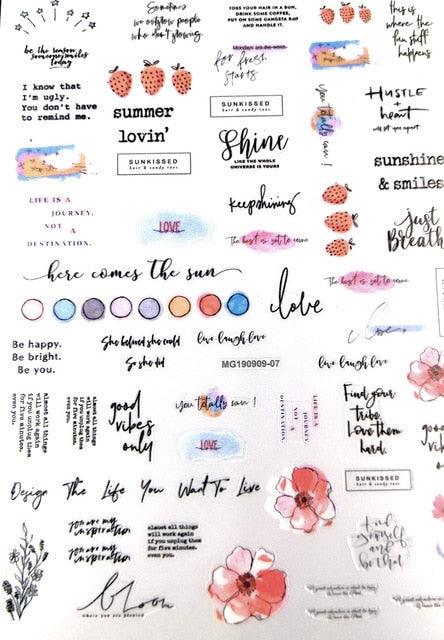 Sometimes
we outgrow people
who don't growing.
TOSS YOUR HAIR IN A BUN,
DRINK SOME COFFEE,
PUT ON SOME GANGSTA RAP
AND HANDLE IT.
this is
where the
fun stuff
happens
be the reason
someone smiles
today
Mondays are the worst.
for fresh
starts
I know that
I'm ugly.
You don't have
to remind me.
summer
lovin'
SUNKISSED
hair & sandy toes
you totally can!
HUSTLE
+
heart
will set you apart
SUNKISSED
hair & sandy toes
Shine
LIKE THE WHOLE
UNIVERSE IS YOURS
sunshine
& smiles
LIFE IS A
JOURNEY,
NOT A
DESTINATION.
LOVE
keep shining
The best is yet to come
just
Breath
here comes the sun
The best is yet to come
love
love
Be happy.
Be bright.
Be you.
She believed she could
So she did
live laugh love
MG190909-07
live laugh love
almost all things
will work again
if you unplug them
for five minutes.
even you.
almost all things
will work again
if you unplug them
for five minutes.
even you.
good
vibes
only
you totally can!
LOVE
LIFE IS A
JOURNEY,
NOT A
DESTINATION.
Find your
tribe.
Love them
hard.
good
vibes
SUNKISSED
hair & sandy toes
Design The Life You Want To Live
you are my
inspiration
you are my
inspiration
almost all things
will work again
if you unplug them
for five minutes.
even you.
find
yourself
and
be that
bloom
where you are planted